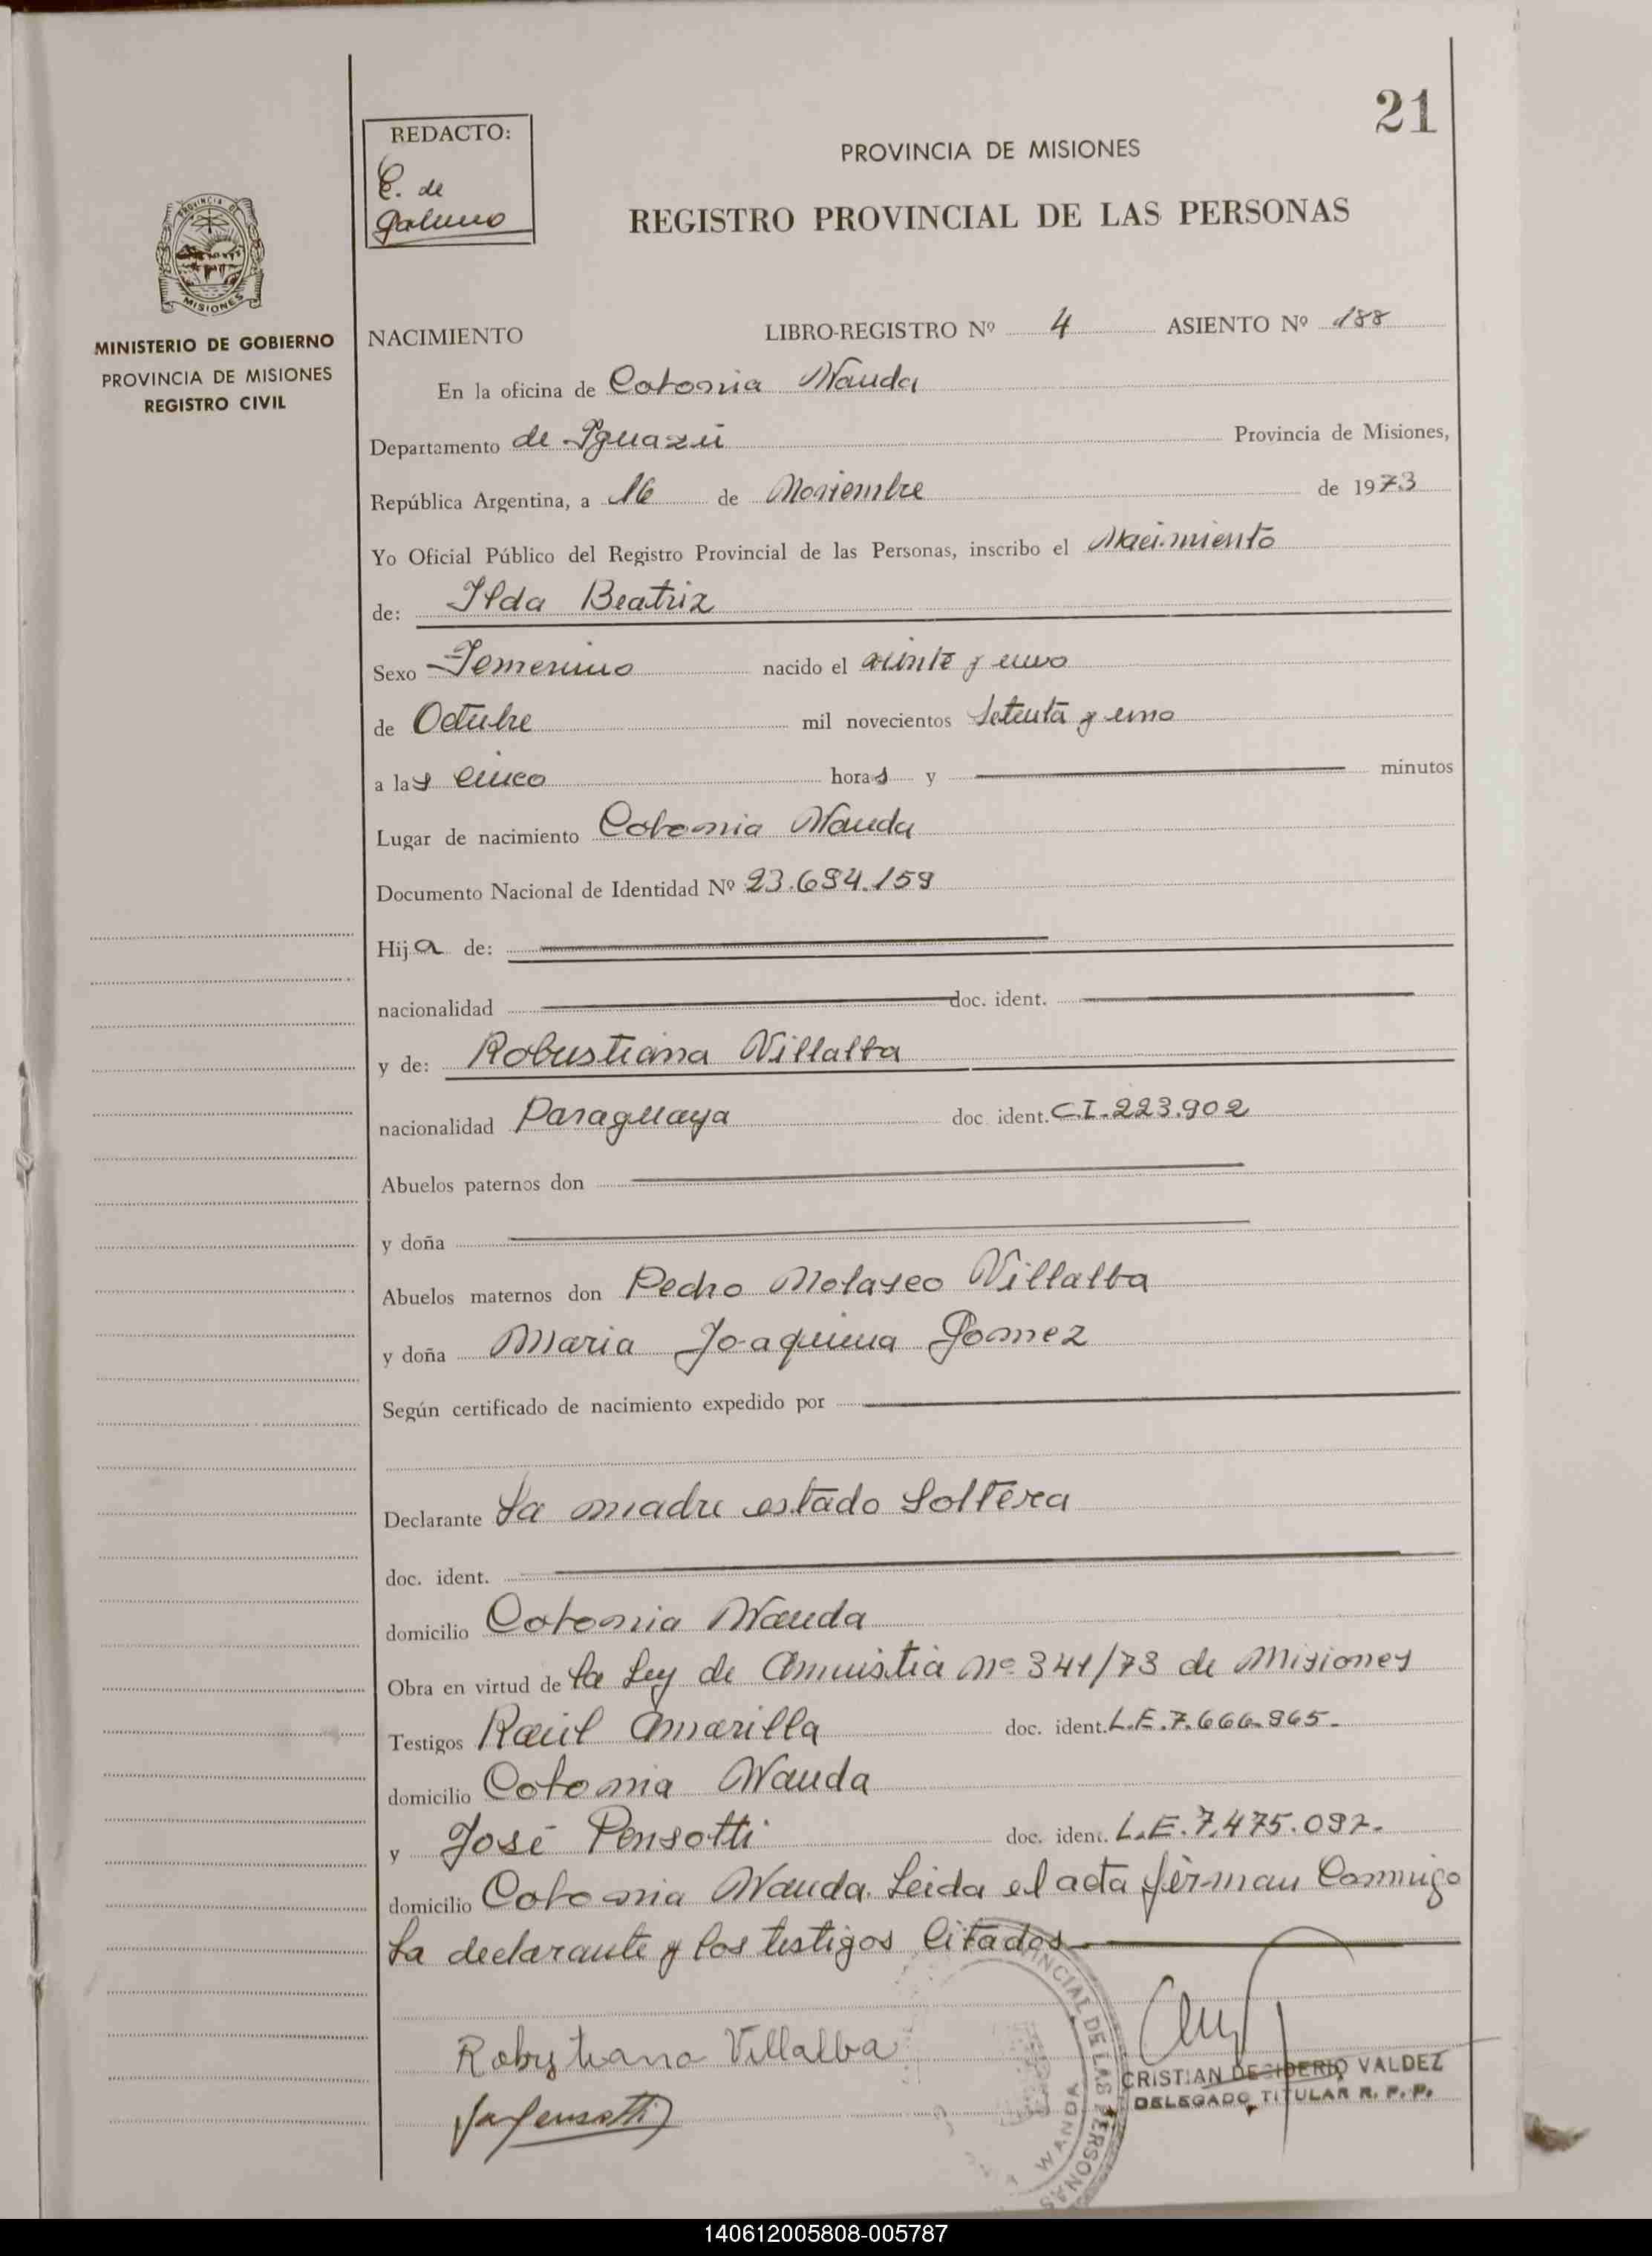 21
REDACTO:
E. de
Galeano
PROVINCIA DE MISIONES
REGISTRO PROVINCIAL DE LAS PERSONAS
MISIONES
MINISTERIO DE GOBIERNO
PROVINCIA DE MISIONES
REGISTRO CIVIL
NACIMIENTO LIBRO-REGISTRO Nº 4 ASIENTO Nº 188
En la oficina de Colonia Wanda
Departamento de Iguazú Provincia de Misiones,
República Argentina, a 16 de Noviembre de 1973
Yo Oficial Público del Registro Provincial de las Personas, inscribo el Nacimiento
de: Ilda Beatriz
Sexo Femenino nacido el veinte y uno
de Octubre mil novecientos Setenta y uno
a las cinco horas y minutos
Lugar de nacimiento Colonia Wanda
Documento Nacional de Identidad Nº 23.694.159
Hija de:
nacionalidad doc. ident.
y de: Robustiana Villalba
nacionalidad Paraguaya doc ident. C.I. 223.902
Abuelos paternos don
y doña
Abuelos maternos don Pedro Nolasco Villalba
y doña Maria Joaquina Gomez
Según certificado de nacimiento expedido por
Declarante La madre estado Soltera
doc. ident.
domicilio Colonia Wanda
Obra en virtud de la Ley de Amnistia Nº 341/73 de Misiones
Testigos Raúl Amarilla doc. ident. L.E. 7.666.965.
domicilio Colonia Wanda
y José Pensotti doc. ident. L.E. 7.475.092.
domicilio Colonia Wanda. Leida el acta firman Conmigo
La declarante y los testigos Citados
Robustiana Villalba
CRISTIAN DESIDERIO VALDEZ
DELEGADO TITULAR R. P. P.
WANDA
140612005808-005787